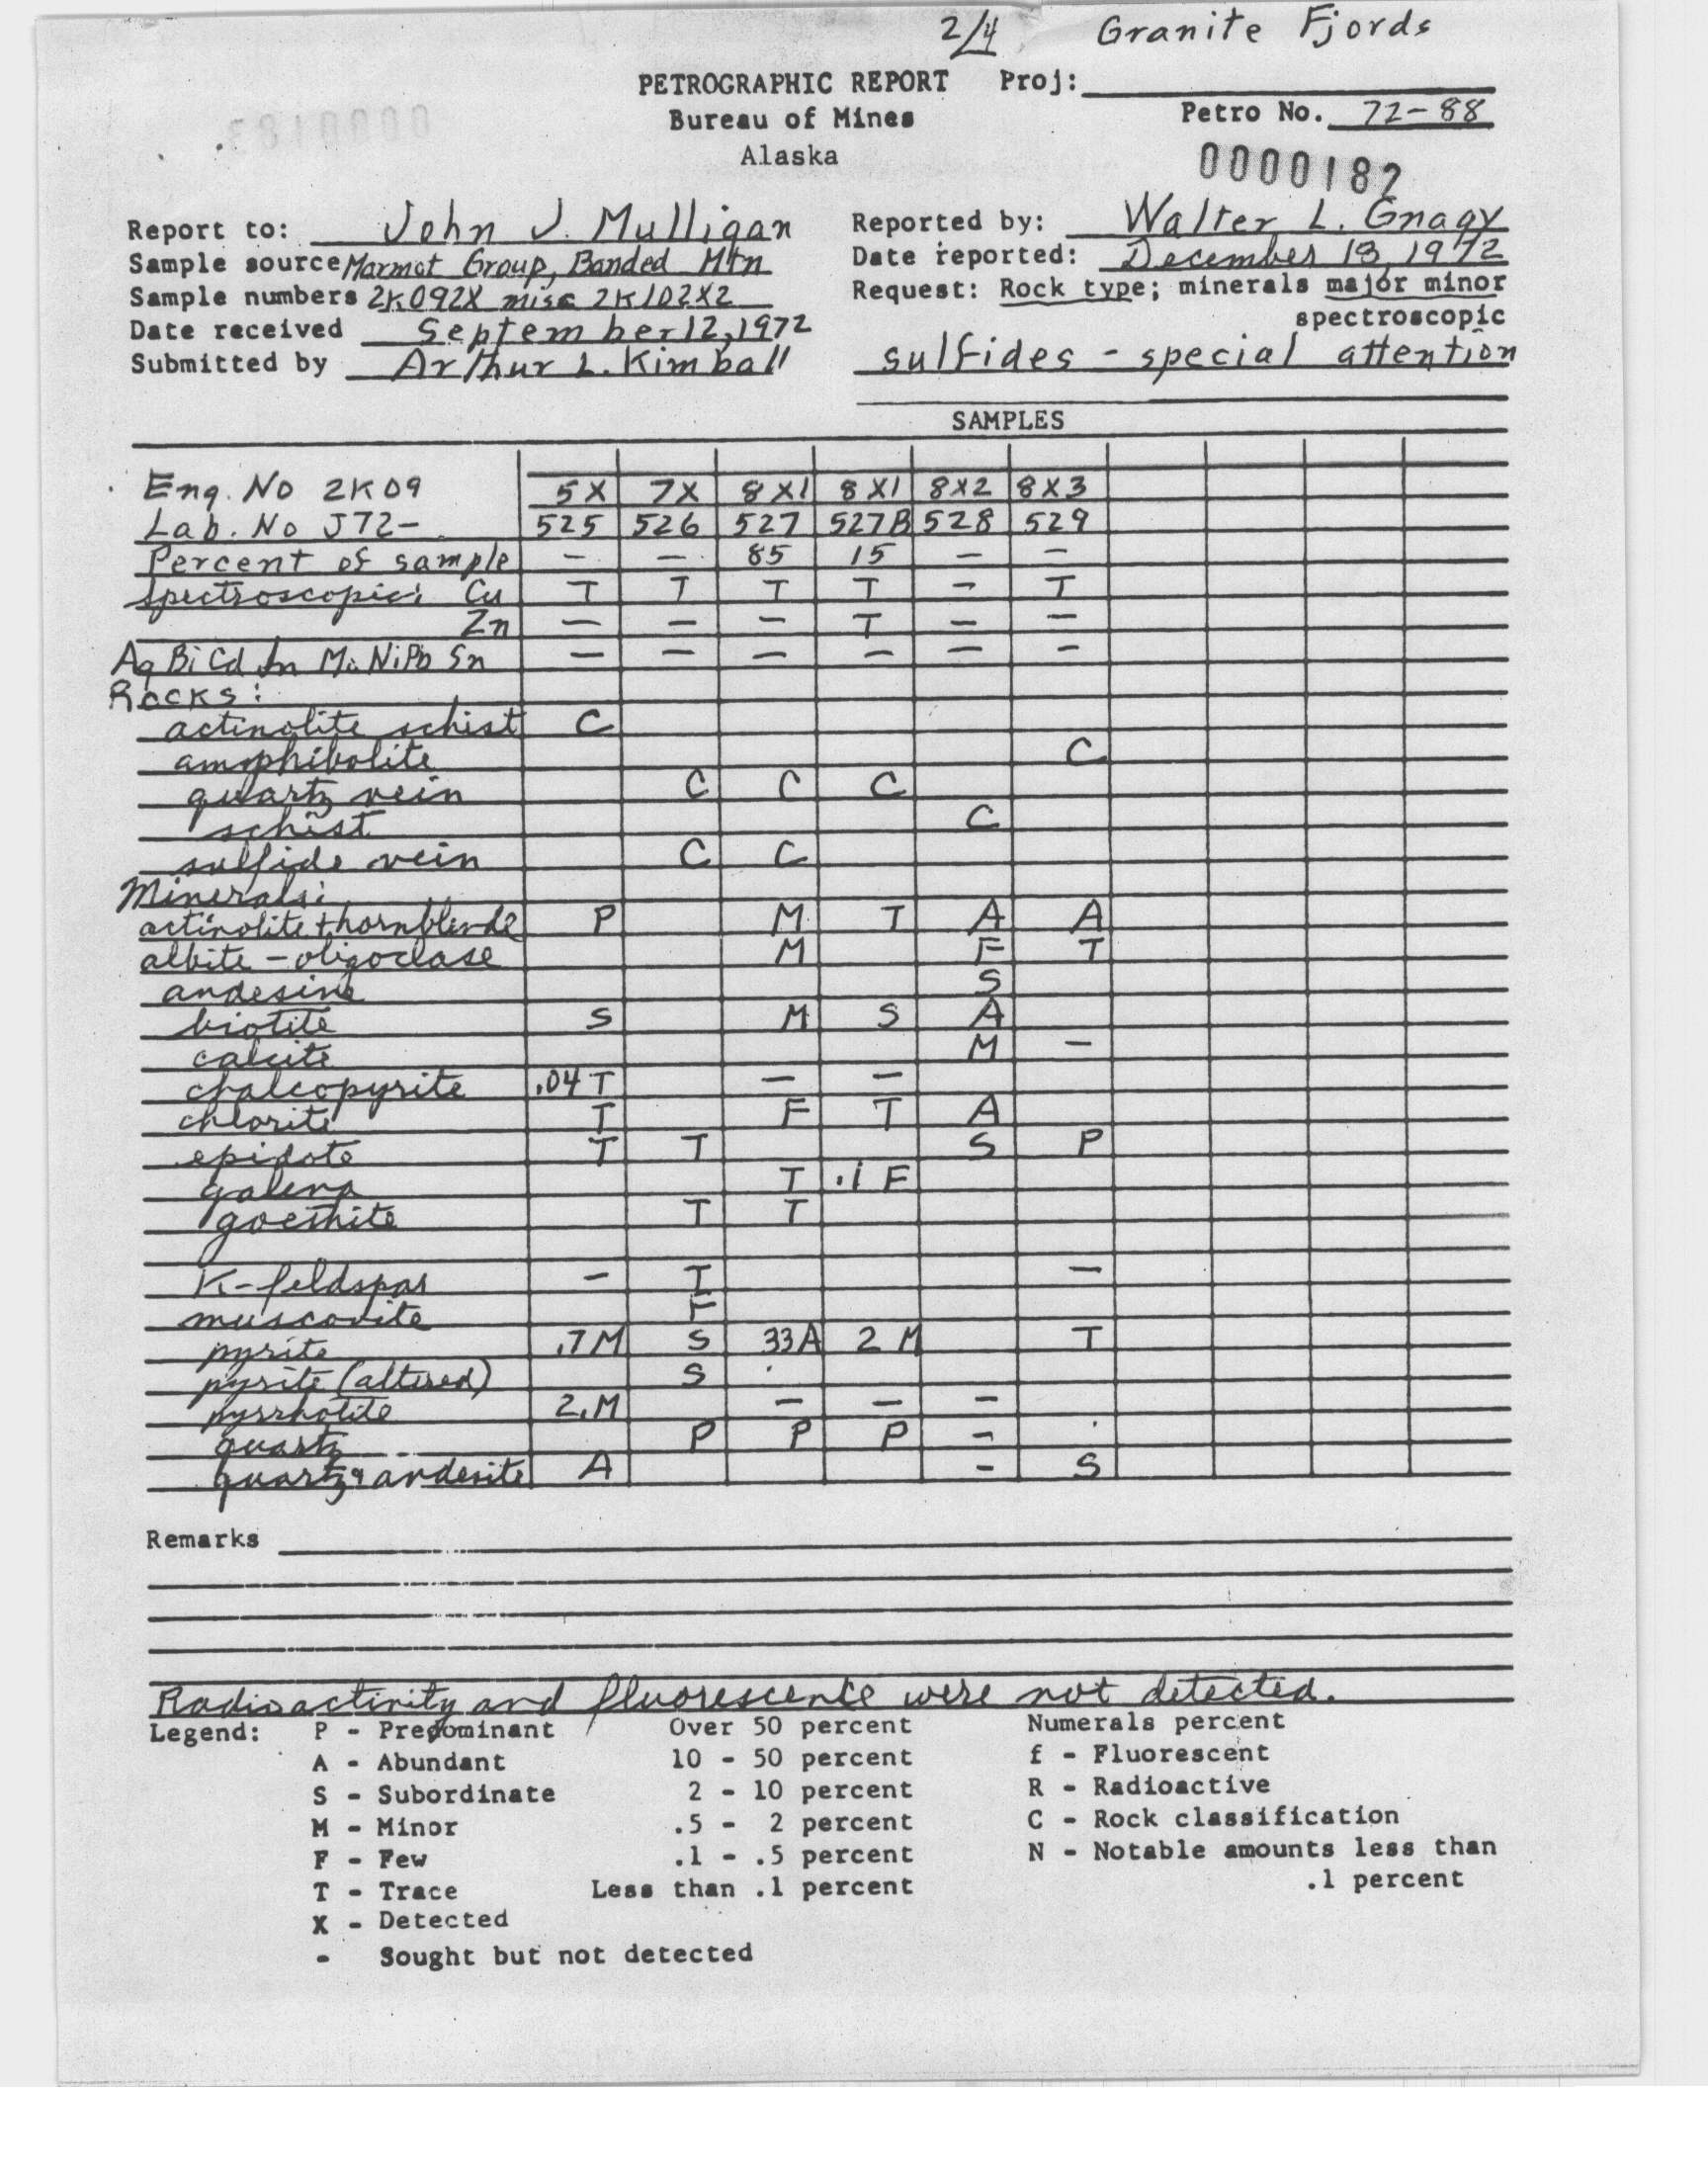 2/4 Granite Fjords
PETROGRAPHIC REPORT Proj:
Bureau of Mines Petro No. 72-88
Alaska
0000182
Report to: John J. Mulligan Reported by: Walter L. Gnagy
Sample source Marmot Group, Banded Mtn Date reported: December 13, 1972
Sample numbers 2K092X misc 2K102X2 Request: Rock type; minerals major minor
Date received September 12, 1972 spectroscopic
Submitted by Arthur L. Kimball sulfides - special attention
SAMPLES
Eng. No 2K09 5X 7X 8X1 8X1 8X2 8X3
Lab. No J72- 525 526 527 527B 528 529
Percent of sample - - 85 15 - -
spectroscopic: Cu T T T T - T
Zn - - - T - -
Ag Bi Cd In Mo Ni Pb Sn - - - - - -
Rocks:
actinolite schist C
amphibolite C
quartz vein C C C
schist C
sulfide vein C C
Minerals:
actinolite + hornblende P M T A A
albite - oligoclase M F T
andesine S
biotite S M S A
calcite M -
chalcopyrite .04 T - -
chlorite T F T A
epidote T T S P
galena T .1 F
goethite T T
K-feldspar - T -
muscovite F
pyrite .7 M S 33A 2 M T
pyrite (altered) S
pyrrholite 2. M - - -
quartz P P P -
quartz & andesite A - S
Remarks
Radioactivity and fluorescence were not detected.
Legend: P - Predominant Over 50 percent Numerals percent
A - Abundant 10 - 50 percent f - Fluorescent
S - Subordinate 2 - 10 percent R - Radioactive
M - Minor .5 - 2 percent C - Rock classification
F - Few .1 - .5 percent N - Notable amounts less than
T - Trace Less than .1 percent .1 percent
X - Detected
- Sought but not detected